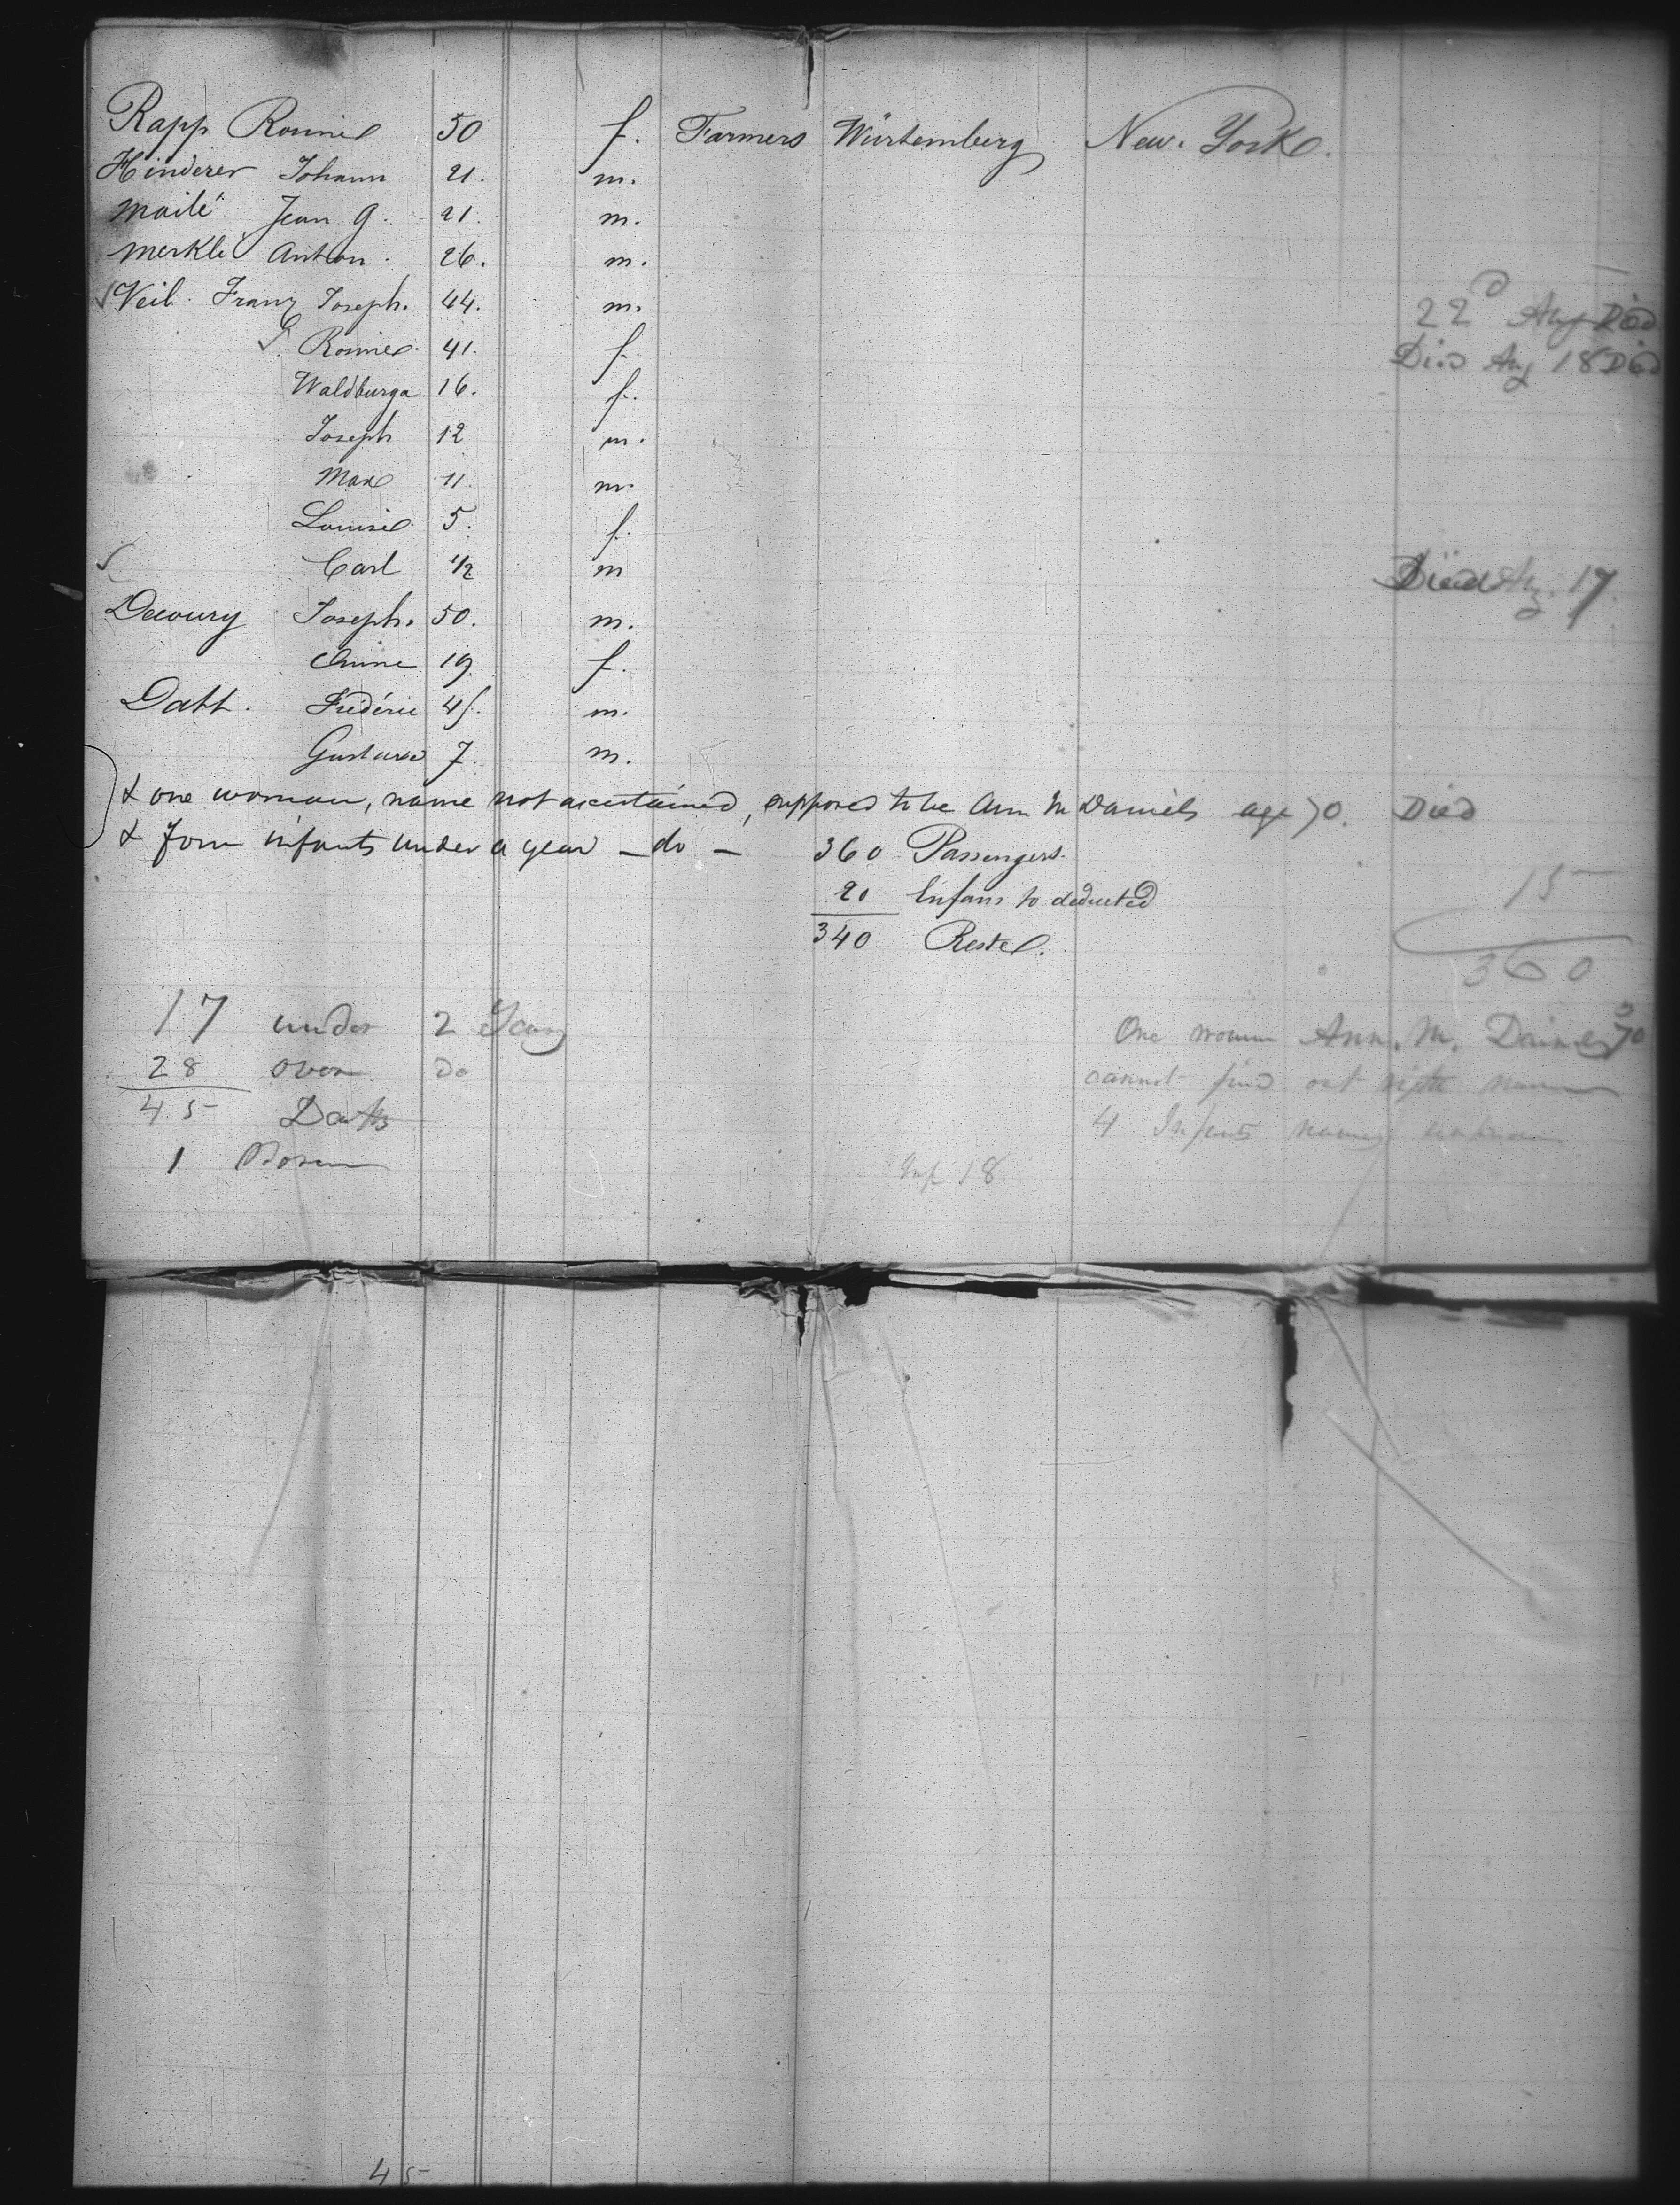 Rapp Rosine 50 f. Farmers Würtemberg New. York.
Hinderer Johann 21. m.
Mailé Jean G. 21. m.
Merkle Anton. 26. m.
Veil. Franz Joseph. 44. m. 22d Aug Died
Rosine. 41. f. Died Aug 18 Died
Waldburga 16. f.
Joseph 12 m.
Max 11. m.
Louise 5. f.
Carl 1/2 m Died Aug. 17.
Decoury Joseph. 50. m.
Anne 19 f.
Datt. Fréderic 45. m.
Gustave 7. m.
& one woman, name not ascertained, supposed to be Ann M Daniels age 70. Died
& four infants under a year - do - 360 Passengers.
20 Enfans to deducted
15
340 Reste.
360
17 under 2 Years
One woman Ann. M. 70
28 over do
cannot find out name
45 Deaths
4 Infants names
1 Born
Inf 18
45